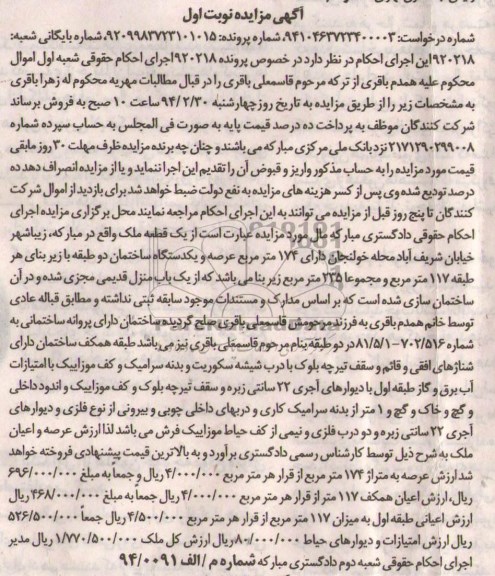 آگهی مزایده نوبت اول
شماره درخواست: ۹۴۱۰۴۶۳۷۲۳۴۰۰۰۰۳، شماره پرونده: ۹۲۰۹۹۸۳۷۲۳۱۰۱۰۱۵، شماره بایگانی شعبه:
۹۲۰۲۱۸ این اجرای احکام در نظر دارد در خصوص پرونده ۹۲۰۲۱۸ اجرای احکام حقوقی شعبه اول اموال
محکوم علیه همدم باقری از ترکه مرحوم قاسمعلی باقری را در قبال مطالبات مهریه محکوم له زهرا باقری
به مشخصات زیر را از طریق مزایده به تاریخ روز چهارشنبه ۹۴/۲/۳۰ ساعت ۱۰ صبح به فروش برساند
شرکت کنندگان موظف به پرداخت ده درصد قیمت پایه به صورت فی المجلس به حساب سپرده شماره
۲۱۷۱۲۹۰۲۹۹۰۰۸ نزد بانک ملی مرکزی مبارکه می باشند و چنان چه برنده مزایده ظرف مهلت ۳۰ روز مابقی
قیمت مورد مزایده را به حساب مذکور واریز و قبوض آن را تقدیم این اجرا ننماید و یا از مزایده انصراف دهد ده
درصد تودیع شده وی پس از کسر هزینه های مزایده به نفع دولت ضبط خواهد شد برای بازدید از اموال شرکت
کنندگان تا پنج روز قبل از مزایده می توانند به این اجرای احکام مراجعه نمایند محل برگزاری مزایده اجرای
احکام حقوقی دادگستری مبارکه مال مورد مزایده عبارت است از یک قطعه ملک واقع در مبارکه، زیباشهر
خیابان شریف آباد محله خولنجان دارای ۱۷۴ متر مربع عرصه و یکدستگاه ساختمان دو طبقه با زیر بنای هر
طبقه ۱۱۷ متر مربع و مجموعا ۲۳۵ متر مربع زیر بنا می باشد که از یک باب منزل قدیمی مجزی شده و در آن
ساختمان سازی شده است که بر اساس مدارک و مستندات موجود سابقه ثبتی نداشته و مطابق قباله عادی
توسط خانم همدم باقری به فرزند مرحومش قاسمعلی باقری صلح گردیده ساختمان دارای پروانه ساختمانی به
شماره ۷۰۲/۵۱۶-۸۱/۵/۱ در دو طبقه بنام مرحوم قاسمعلی باقری نیز می باشد طبقه همکف ساختمان دارای
شناژهای افقی و قائم و سقف تیرچه بلوک با درب شیشه سکوریت و بدنه سرامیک و کف موزاییک با امتیازات
آب برق و گاز طبقه اول با دیوارهای آجری ۲۲ سانتی زبره و سقف تیرچه بلوک و کف موزاییک و اندود داخلی
و گچ و خاک و گچ و ۱ متر از بدنه سرامیک کاری و دربهای داخلی چوبی و بیرونی از نوع فلزی و دیوارهای
آجری ۲۲ سانتی زبره و دو درب فلزی و نیمی از کف حیاط موزاییک فرش می باشد لذا ارزش عرصه و اعیان
ملک به شرح ذیل توسط کارشناس رسمی دادگستری برآورد و به بالاترین قیمت پیشنهادی فروخته خواهد
شد ارزش عرصه به متراژ ۱۷۴ متر مربع از قرار هر متر مربع ۴/۰۰۰/۰۰۰ ریال و جمعاً به مبلغ ۶۹۶/۰۰۰/۰۰۰
ریال، ارزش اعیان همکف ۱۱۷ متر از قرار هر متر مربع ۴/۰۰۰/۰۰۰ ریال جمعاً به مبلغ ۴۶۸/۰۰۰/۰۰۰ ریال
ارزش اعیانی طبقه اول به میزان ۱۱۷ متر مربع از قرار هر متر مربع ۴/۵۰۰/۰۰۰ ریال جمعاً ۵۲۶/۵۰۰/۰۰۰
ریال ارزش امتیازات و دیوارهای حیاط ۸۰/۰۰۰/۰۰۰ ریال ارزش کل ملک ۱/۷۷۰/۵۰۰/۰۰۰ ریال مدیر
اجرای احکام حقوقی شعبه دوم دادگستری مبارکه شماره م/الف ۹۴/۰۰۹۱